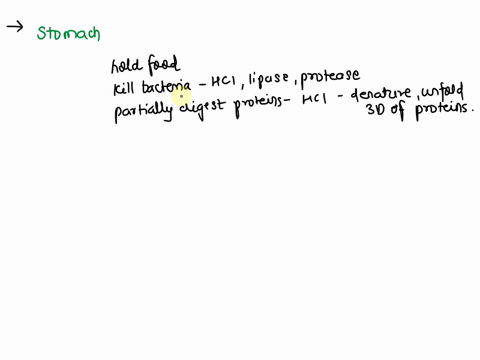 → Stomach
hold food
kill bacteria - HCl, lipase, protease
partially digest proteins - HCl - denature, unfold
3D of proteins.